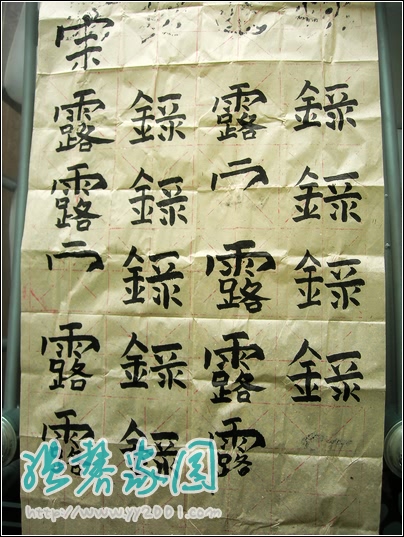 錄錄錄錄
露露露露
錄錄錄錄錄
宋露露露露
家园
http://www.yy2001.com